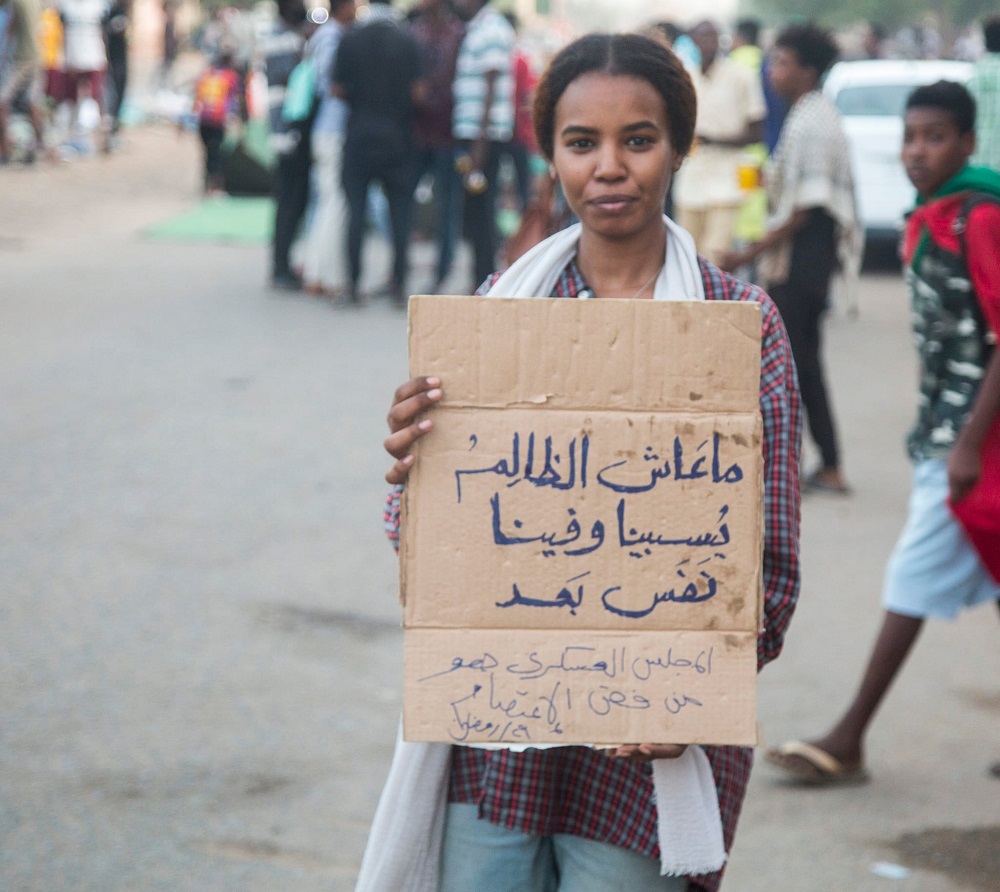 ماعَاش الظالِمُ
يُسبينا وفينا
نَفَس بَعد
المجلس العسكري هو
من فض الاعتصام
٢٩/رمضان